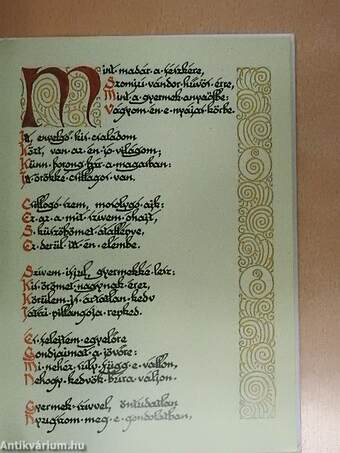 Mint·madár·a·fészkére,
Szomjú·vándor·hűvös·érre,
Mint·a·gyermek·anyaölbe:
Vágyom·én·e·nyájas·körbe.
Itt, enyelgő·kis·családom
Közt, van·az·én·jó·világom;
Künn·borong·bár·a·magasban:
Itt·örökke·csillagos·van.
Csillogó·szem, mosolygó·ajk:
Ez·az·a·mit·szivem·óhajt,
S·küszöbömet·átallépve,
Ez·derül·itt·én·elémbe.
Szivem·ujul, gyermekké·lesz:
Kis·örömet·nagynak·érez,
Körülem·is·ártatlan·kedv
Játszi·pillangója·repked.
El·felejtem·egyelőre
Gondjaimat·a·jövőre:
Mi·nehéz·súly·függ·e·vállon,
Nehogy·kedvök·búra·váljon.
Gyermek·szívvel, öntudatlan
Nyugszom·meg·e·gondolatban,
antikvárium.hu